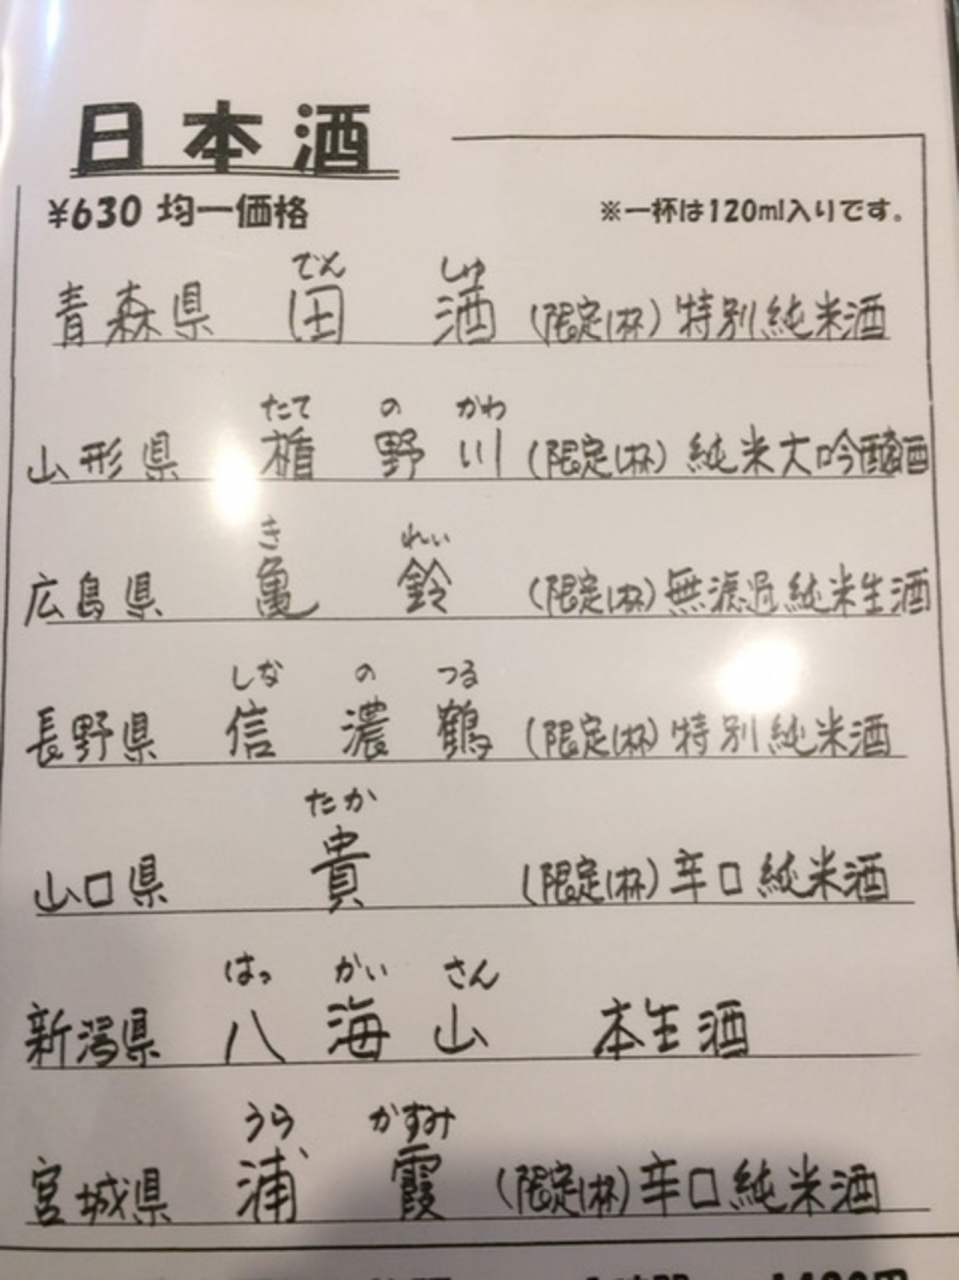 日本酒
¥630 均一価格 ※一杯は120ml入りです。
でん しゅ
青森県 田 酒 (限定1杯) 特別純米酒
たて の かわ
山形県 楯 野 川 (限定1杯) 純米大吟醸酒
き れい
広島県 亀 鈴 (限定1杯) 無濾過純米生酒
しな の つる
長野県 信 濃 鶴 (限定1杯) 特別純米酒
たか
山口県 貴 (限定1杯) 辛口純米酒
はっ かい さん
新潟県 八 海 山 本生酒
うら かすみ
宮城県 浦 霞 (限定1杯) 辛口純米酒